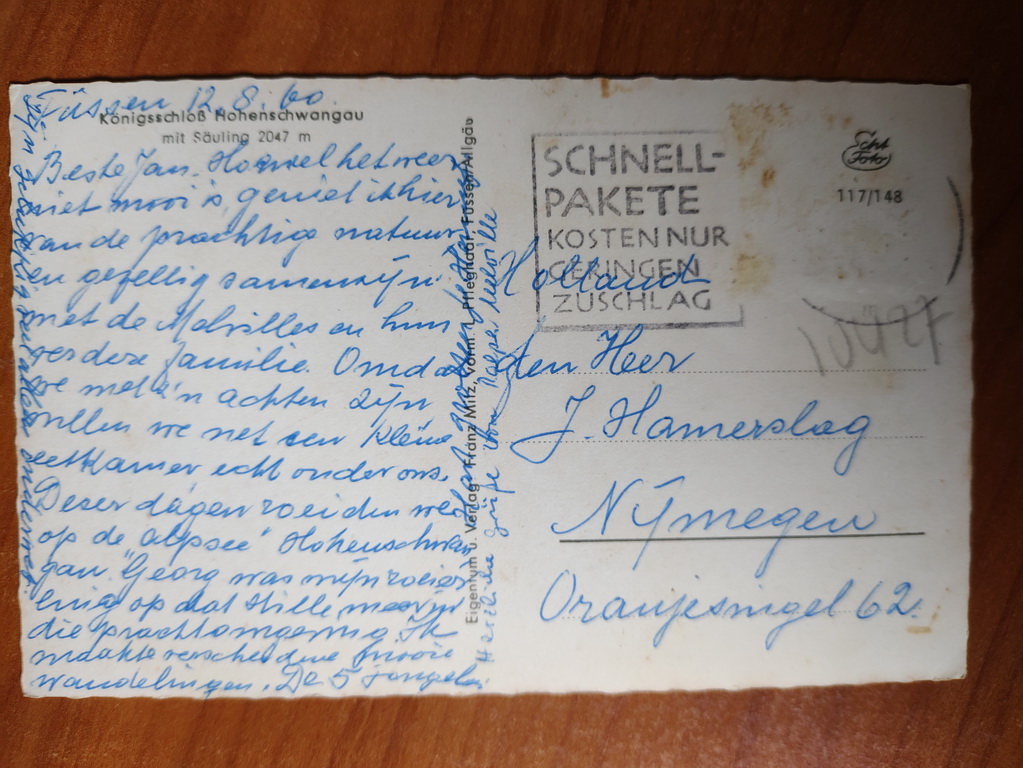 Füssen 12.8.60.
Königsschloß Hohenschwangau
mit Säuling 2047 m
Beste Jan. Hoewel het weer
niet mooi is, geniet ik hier
van de prachtige natuur
en gezellig samenzijn
met de Melvilles en hun
verdere familie. Omdat
we met z'n achten zijn
vullen we net een kleine
eetkamer echt onder ons.
Dezer dagen roeiden we
op de "alpsee" Hohenschwan
gau. Georg was mijn roeier
ling op dat stille meer in
die prachtomgeving. Ik
maakte verscheidene mooie
wandelingen. De 5 jongelui
zijn
Herzliche Grüße von
Melville
Eigentum u. Verlag Franz Milz, vorm. Pfleghaar, Füssen/Allgäu
SCHNELL-
PAKETE
KOSTEN NUR
GERINGEN
ZUSCHLAG
Echt
Foto
117/148
Holland
den Heer
J. Hamerslag
Nijmegen
Oranjesingel 62.